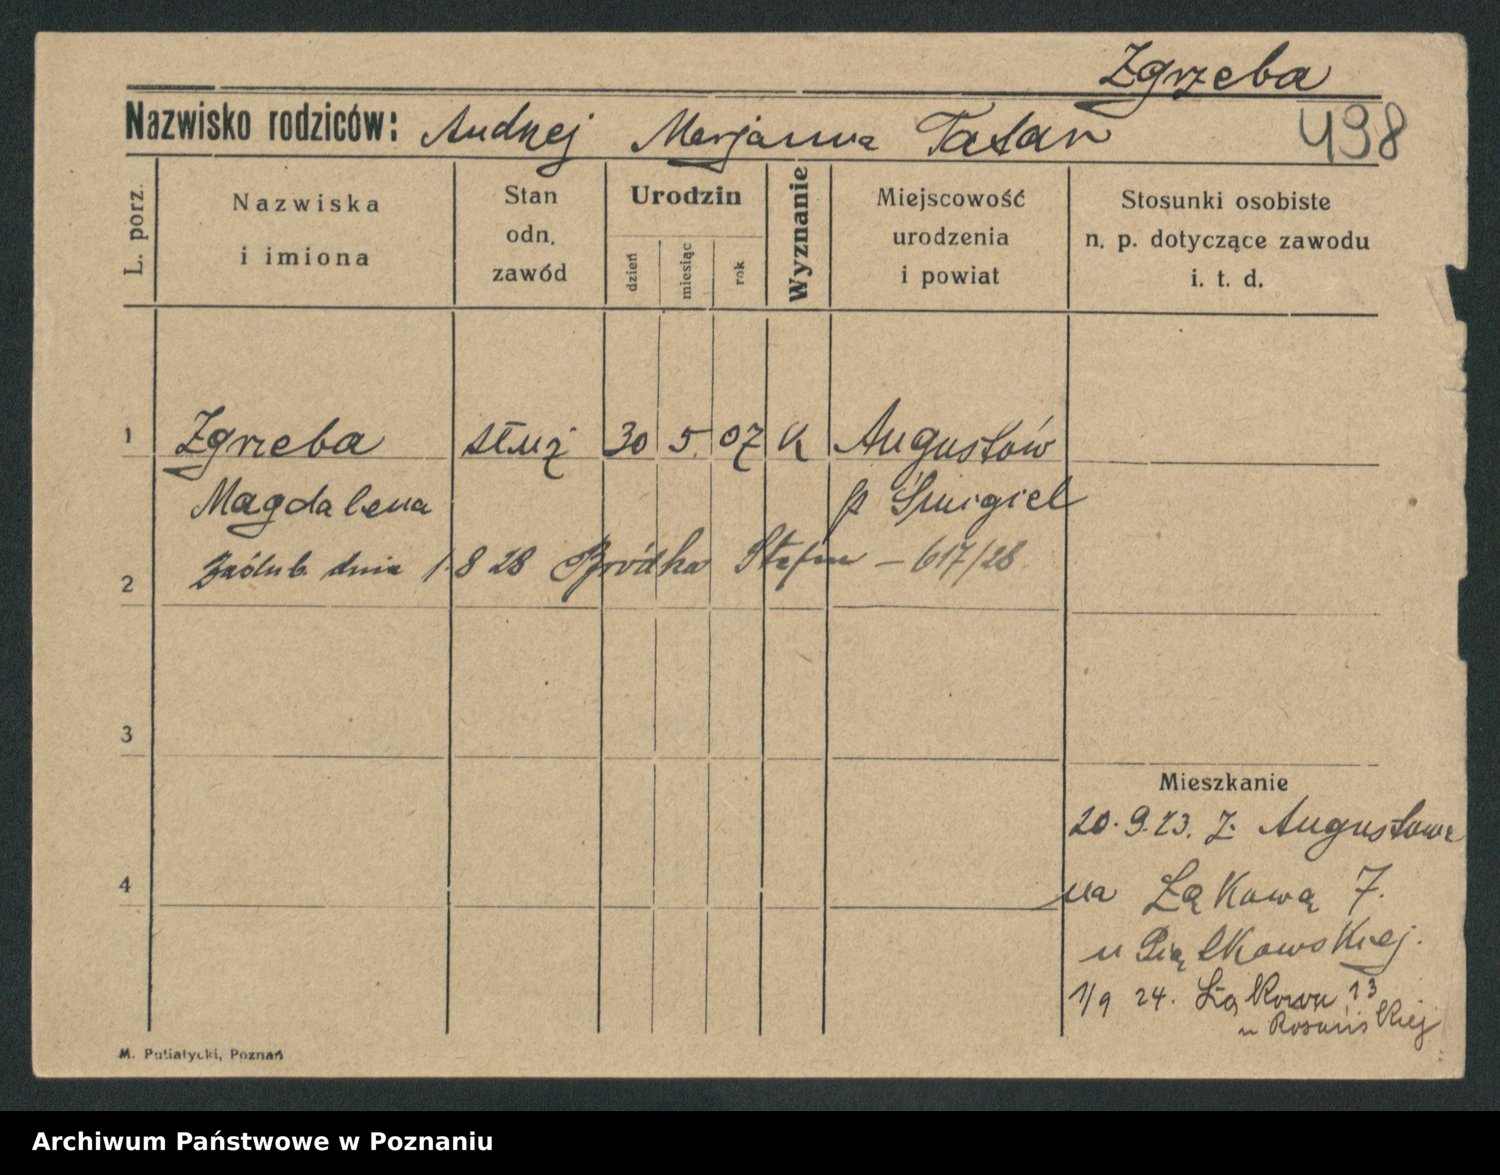 Zgrzeba
Nazwisko rodziców: Andrzej Marjanna Tatar
498
L. porz.
Nazwiska
i imiona
Stan
odn.
zawód
Urodzin
dzień
miesiąc
rok
Wyznanie
Miejscowość
urodzenia
i powiat
Stosunki osobiste
n. p. dotyczące zawodu
i. t. d.
1 Zgrzeba służ 30 5. 07 K Augustów
Magdalena p Śmigiel
2 Zaślub. dnia 1.8 28 Bródka Stefan – 617/28.
3
Mieszkanie
20.9.23. z. Augustowa
4
na Łąkową 7.
u Piątkowskiej.
1/9 24. Łąkowa 13
u
M. Putiatycki, Poznań
Archiwum Państwowe w Poznaniu